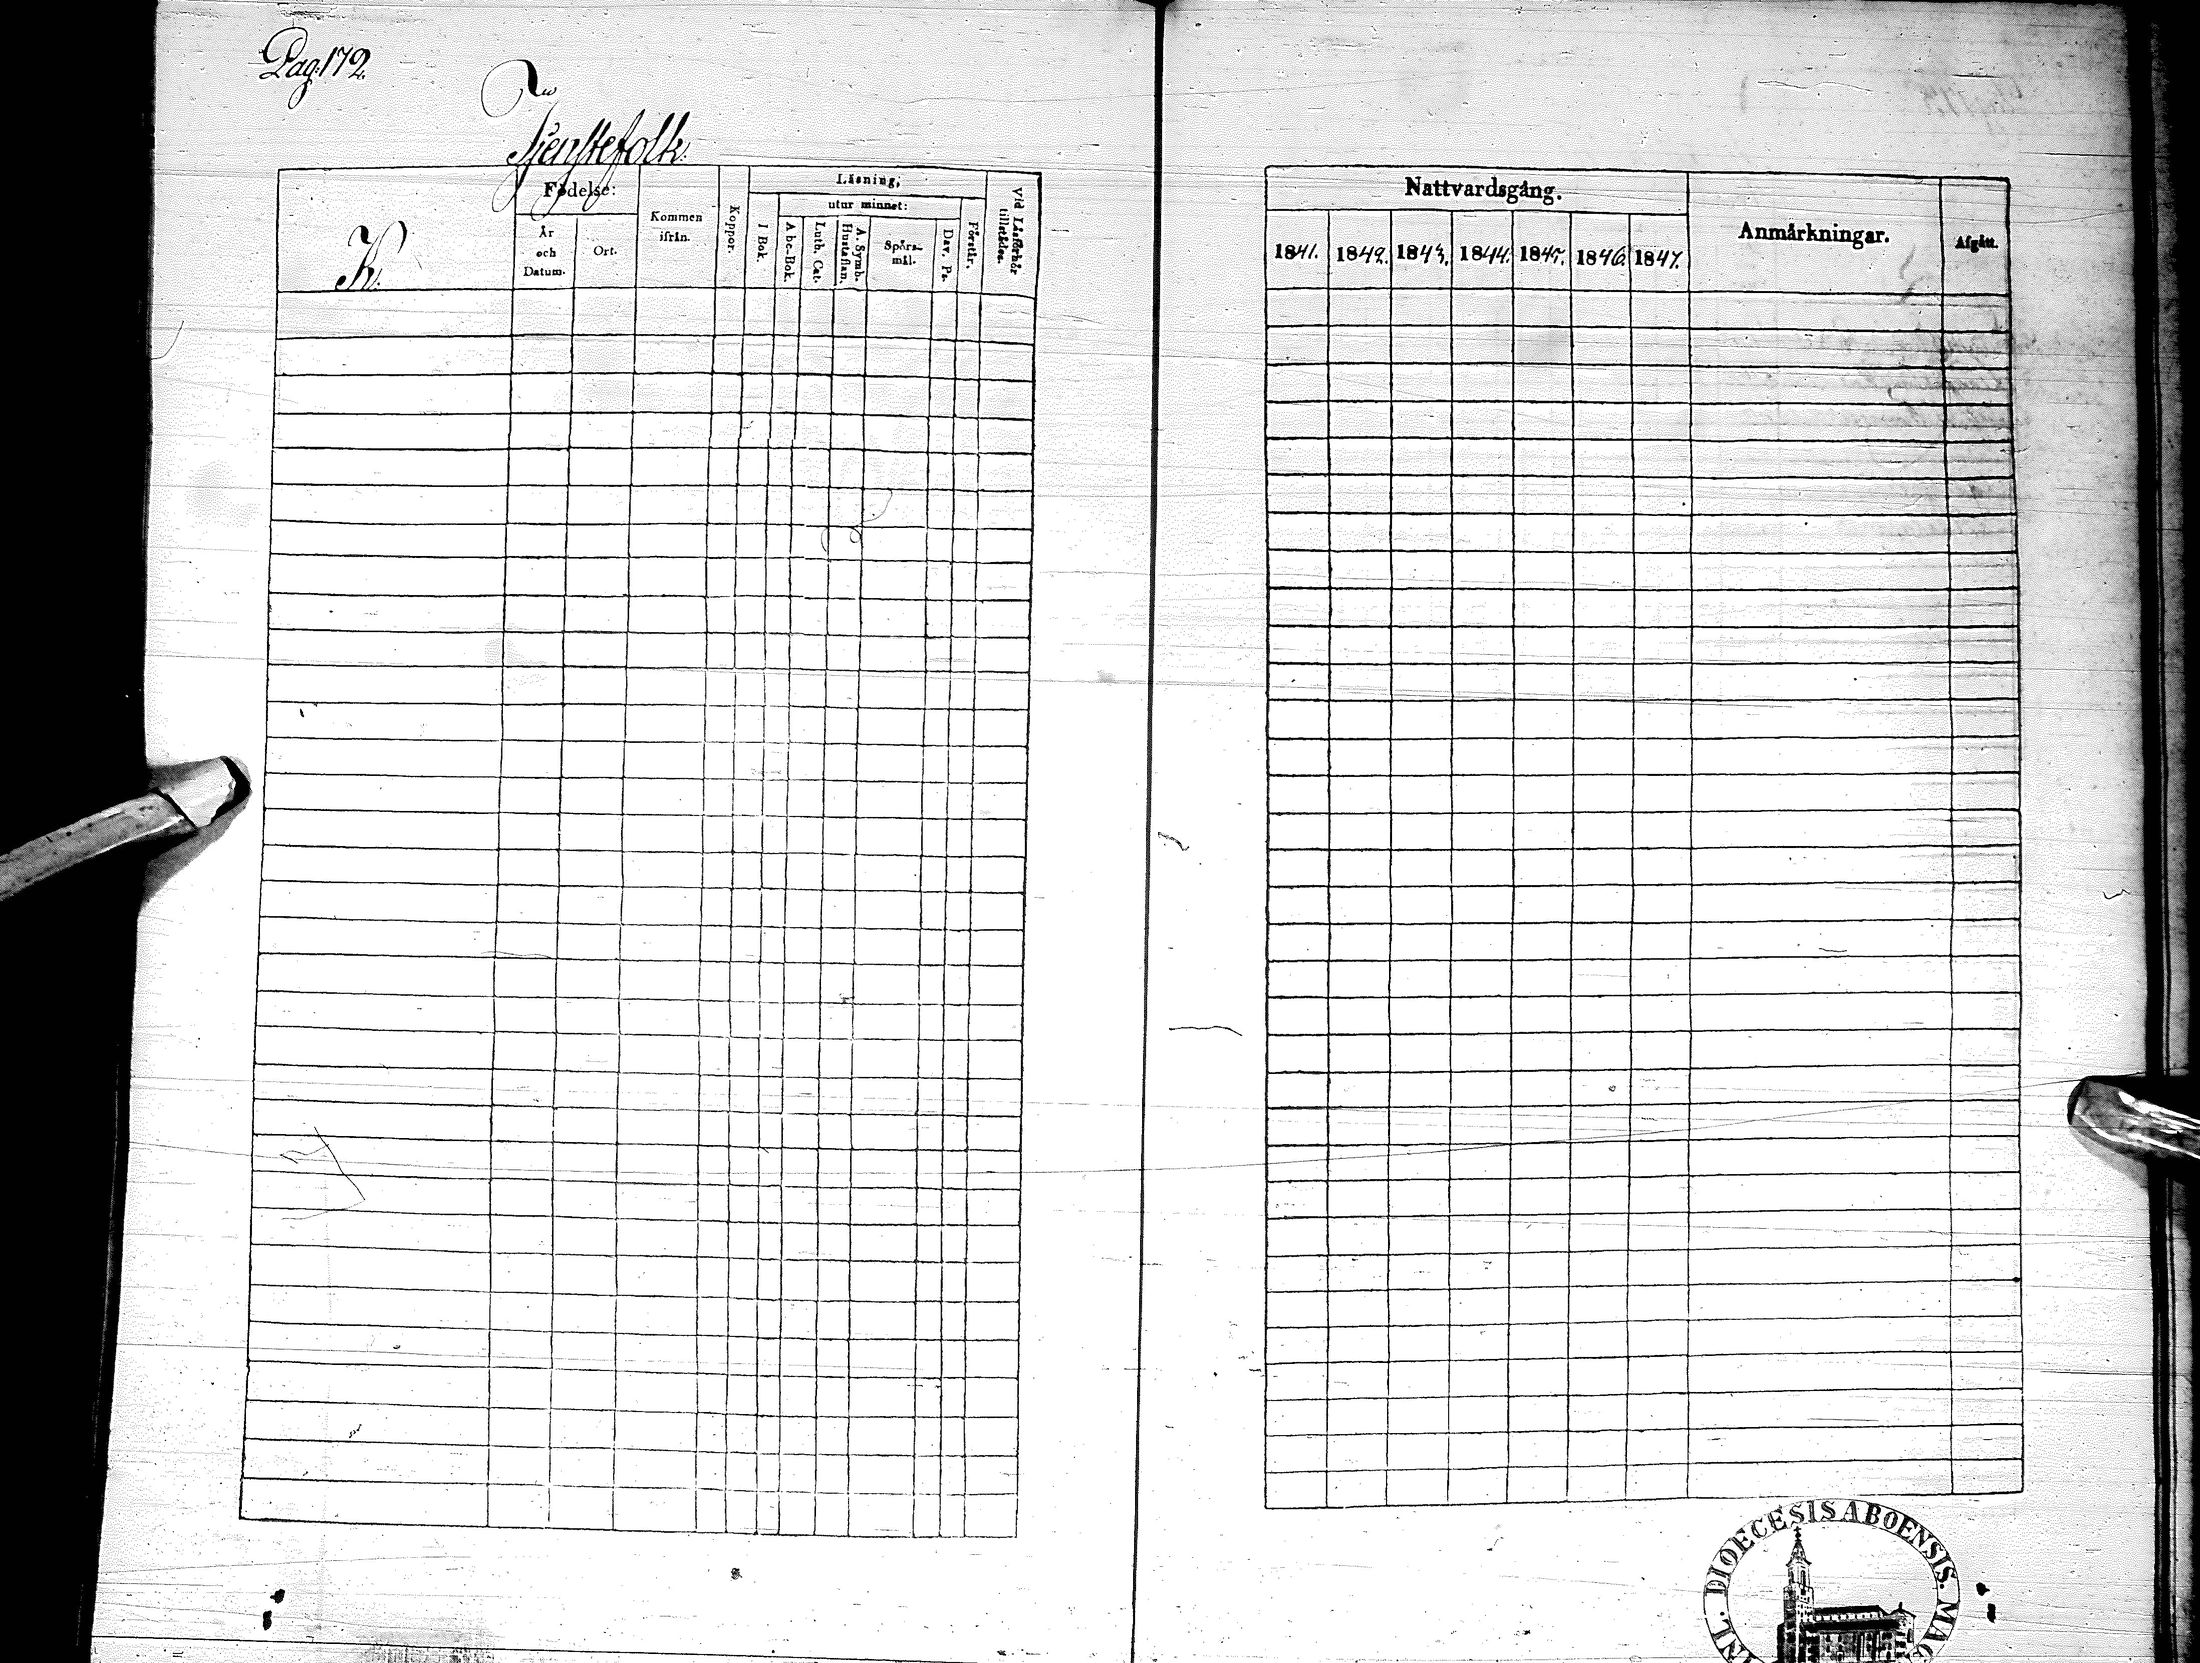 Pag: 172.
Tjenstefolk.
K.
Födelse:
År
och
Datum.
Ort.
Kommen
ifrån.
Koppor.
Läsning,
I Bok.
utur minnet:
Abc-Bok.
Luth. Cat.
A. Symb.
Hustaflan.
Spörs-
mål.
Dav. Ps.
Förstår.
Vid Läsförhör
tillstädes.
Nattvardsgång.
1841. 1842. 1843. 1844. 1845. 1846. 1847.
Anmärkningar.
Afgått.
DIOECESIS ABOENSIS. MAG